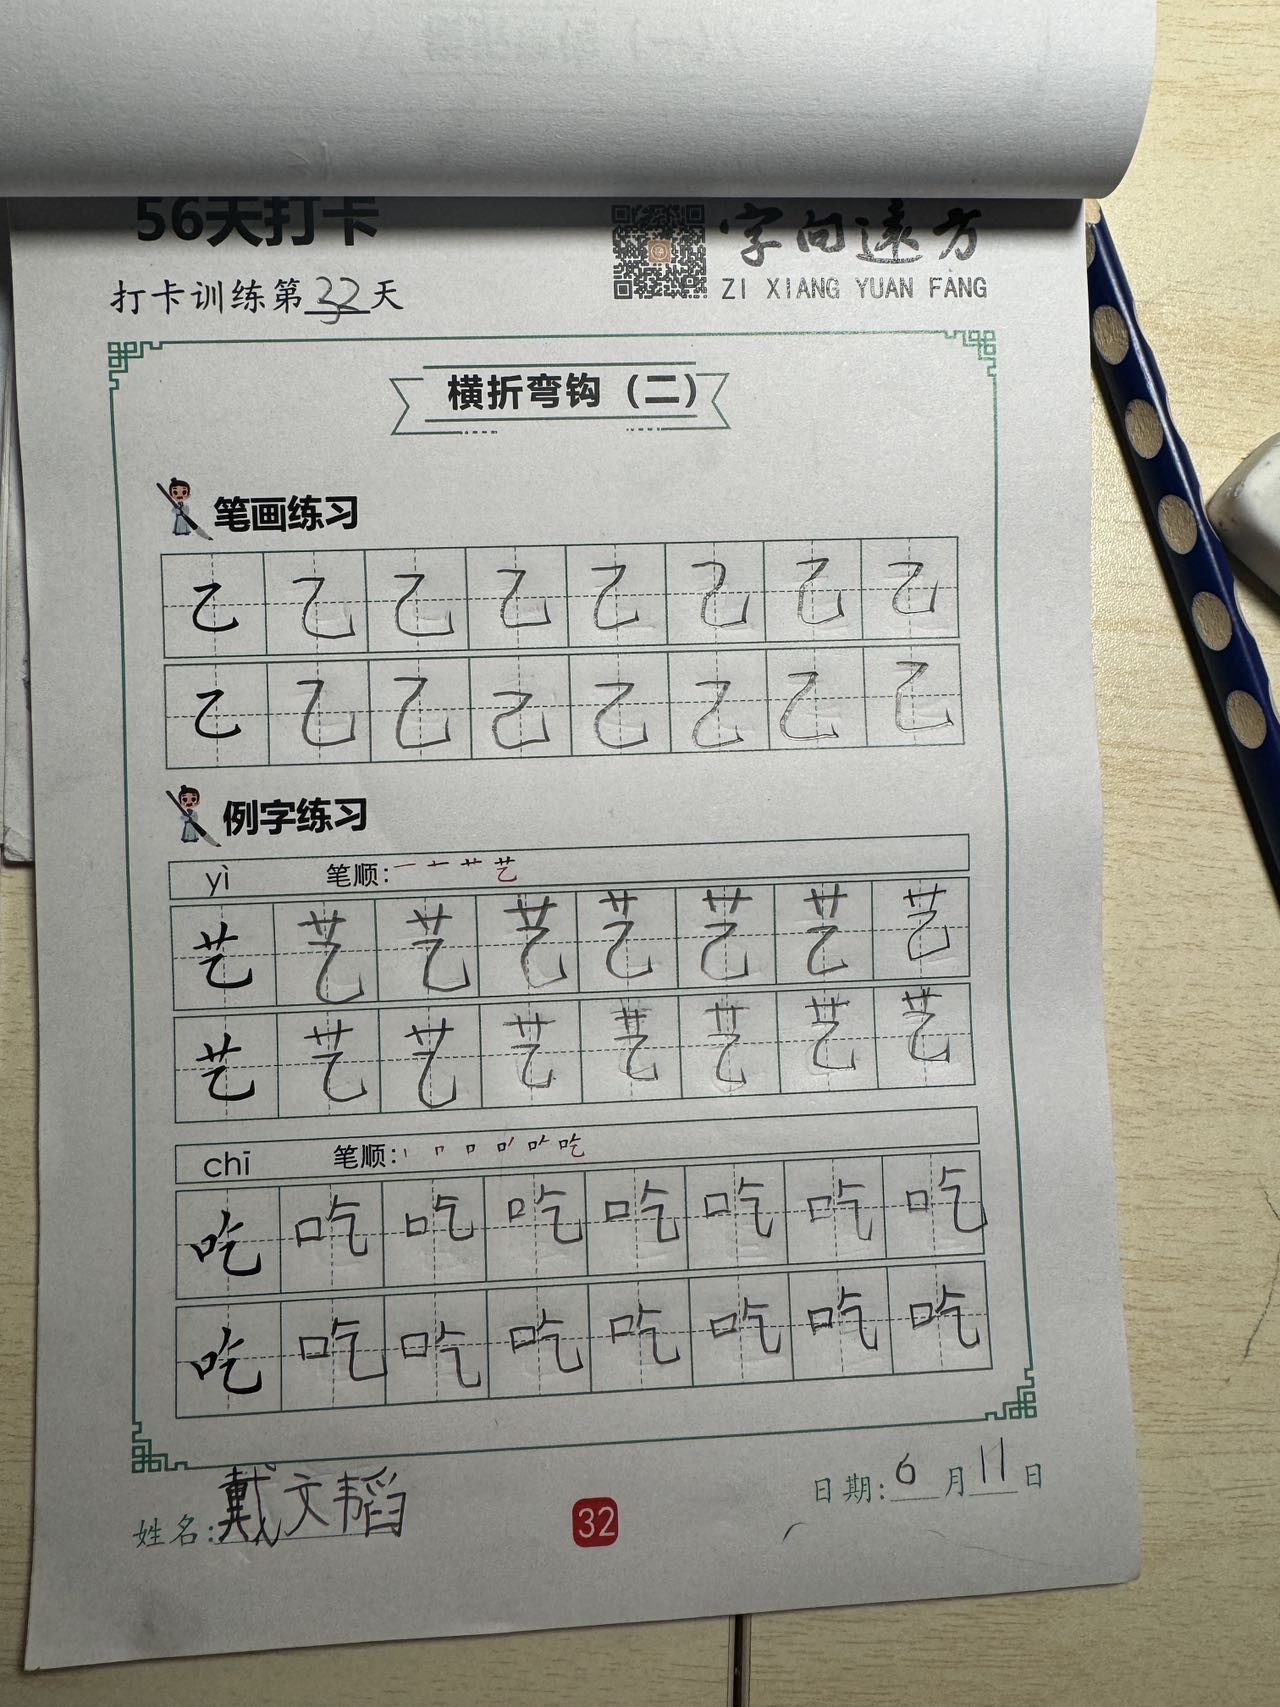 56天打卡
字向遠方
打卡训练第32天
ZI XIANG YUAN FANG
横折弯钩（二）
笔画练习
乙乙乙乙乙乙乙乙
乙乙乙乙乙乙乙乙
例字练习
yì 笔顺: 一 艹 艺
艺艺艺艺艺艺艺艺
艺艺艺艺艺艺艺艺
chī 笔顺: 丨 口 吃
吃吃吃吃吃吃吃吃
吃吃吃吃吃吃吃吃
姓名:戴文韬
日期:6月11日
32